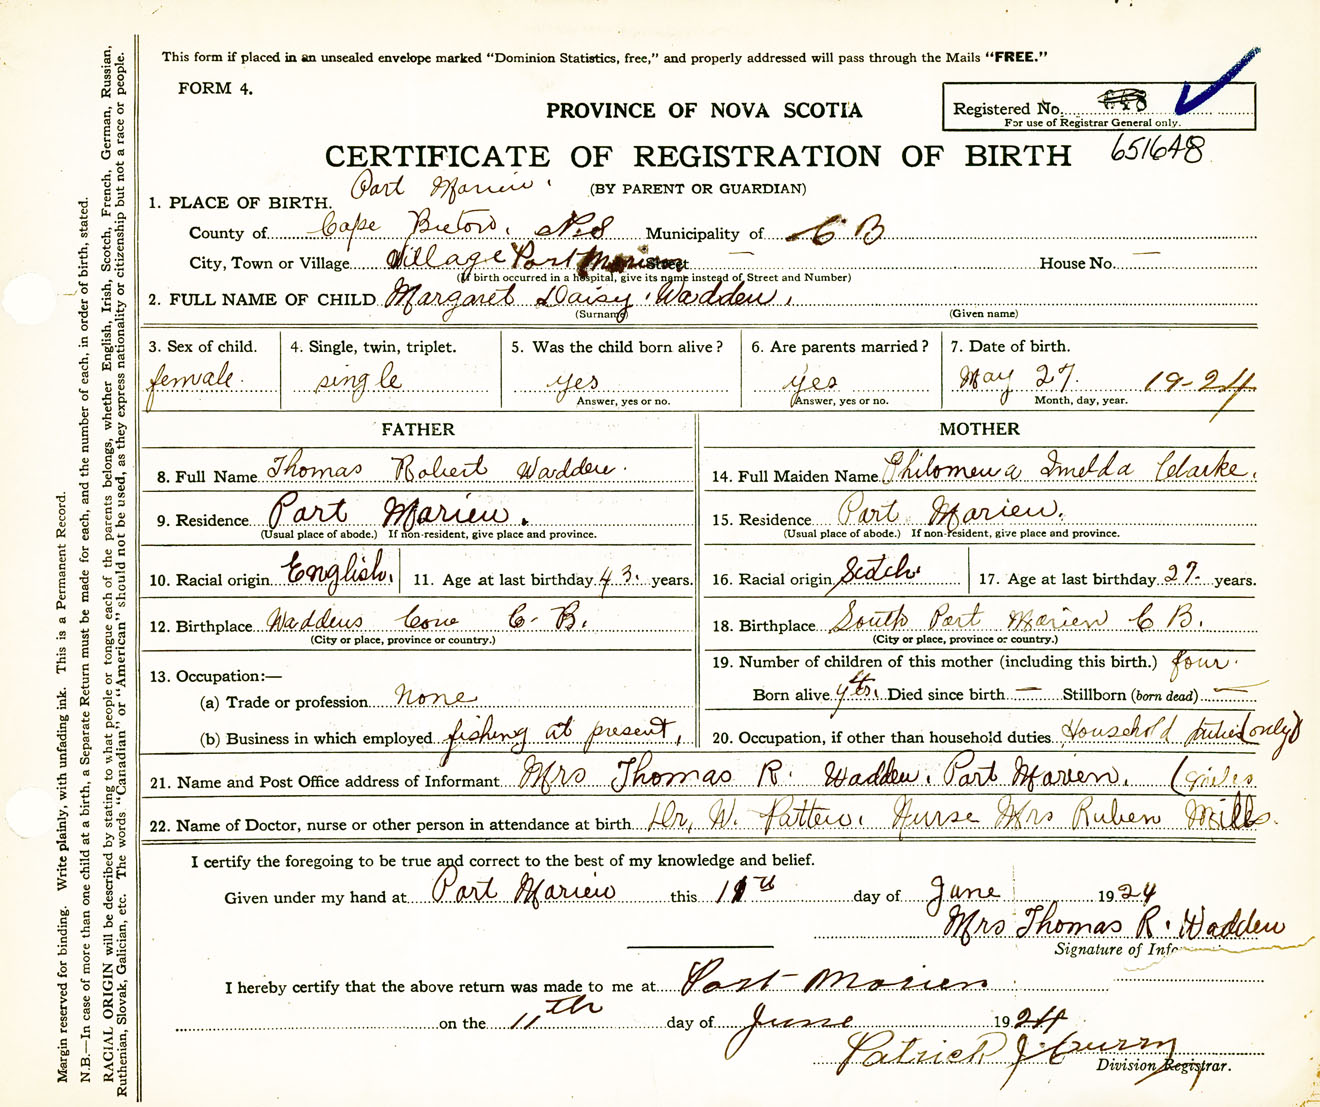 This form if placed in an unsealed envelope marked "Dominion Statistics, free," and properly addressed will pass through the Mails "FREE."
FORM 4.
PROVINCE OF NOVA SCOTIA
Registered No.
For use of Registrar General only.
651648
CERTIFICATE OF REGISTRATION OF BIRTH
(BY PARENT OR GUARDIAN)
Port Morien.
1. PLACE OF BIRTH.
County of Cape Breton, N.S Municipality of C B
City, Town or Village Village Port Morien Street — House No. —
(If birth occurred in a hospital, give its name instead of Street and Number)
2. FULL NAME OF CHILD Margaret Daisy Wadden.
(Surname) (Given name)
3. Sex of child. female.
4. Single, twin, triplet. single
5. Was the child born alive? yes
Answer, yes or no.
6. Are parents married? yes
Answer, yes or no.
7. Date of birth. May 27. 19-24
Month, day, year.
FATHER
8. Full Name Thomas Robert Wadden.
9. Residence Port Morien.
(Usual place of abode.) If non-resident, give place and province.
10. Racial origin English. 11. Age at last birthday 43. years.
12. Birthplace Waddens Cove C- B.
(City or place, province or country.)
13. Occupation:—
(a) Trade or profession None
(b) Business in which employed fishing at present,
MOTHER
14. Full Maiden Name Philomena Imelda Clarke.
15. Residence Port Morien.
(Usual place of abode.) If non-resident, give place and province.
16. Racial origin Scotch. 17. Age at last birthday 27. years.
18. Birthplace South Port Morien C B.
(City or place, province or country.)
19. Number of children of this mother (including this birth.) four.
Born alive yes. Died since birth — Stillborn (born dead) —
20. Occupation, if other than household duties Household duties (only)
21. Name and Post Office address of Informant Mrs Thomas R. Wadden. Port Morien. (miles
22. Name of Doctor, nurse or other person in attendance at birth Dr, W. Patten. Nurse Mrs Ruben Mills.
I certify the foregoing to be true and correct to the best of my knowledge and belief.
Given under my hand at Port Morien this 11th day of June 1924
Mrs Thomas R. Wadden
Signature of Infor
I hereby certify that the above return was made to me at Port Morien
on the 11th day of June 1924
Patrick J. Curry
Division Registrar.
Margin reserved for binding. Write plainly, with unfading ink. This is a Permanent Record.
N.B.—In case of more than one child at a birth, a Separate Return must be made for each, and the number of each, in order of birth, stated.
RACIAL ORIGIN will be described by stating to what people or tongue each of the parents belongs, whether English, Irish, Scotch, French, German, Russian,
Ruthenian, Slovak, Galician, etc. The words "Canadian" or "American" should not be used, as they express nationality or citizenship but not a race or people.